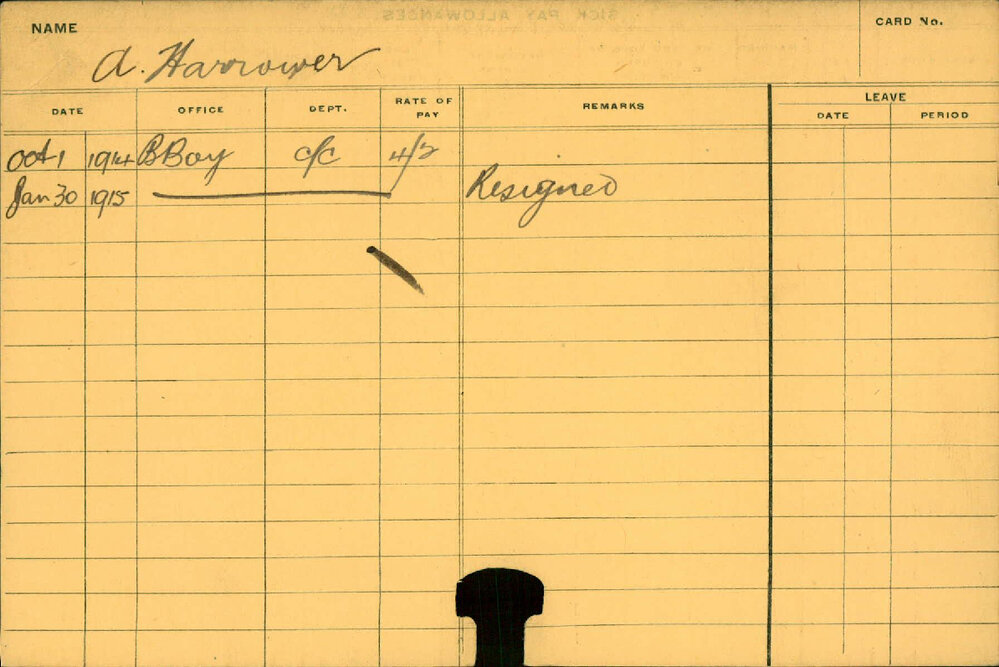 NAME
A. Harrower
CARD No.
DATE OFFICE DEPT. RATE OF PAY REMARKS LEAVE
DATE PERIOD
Oct 1 1914 B Boy c/c 4/2
Jan 30 1915 Resigned
SICK PAY ALLOWANCES